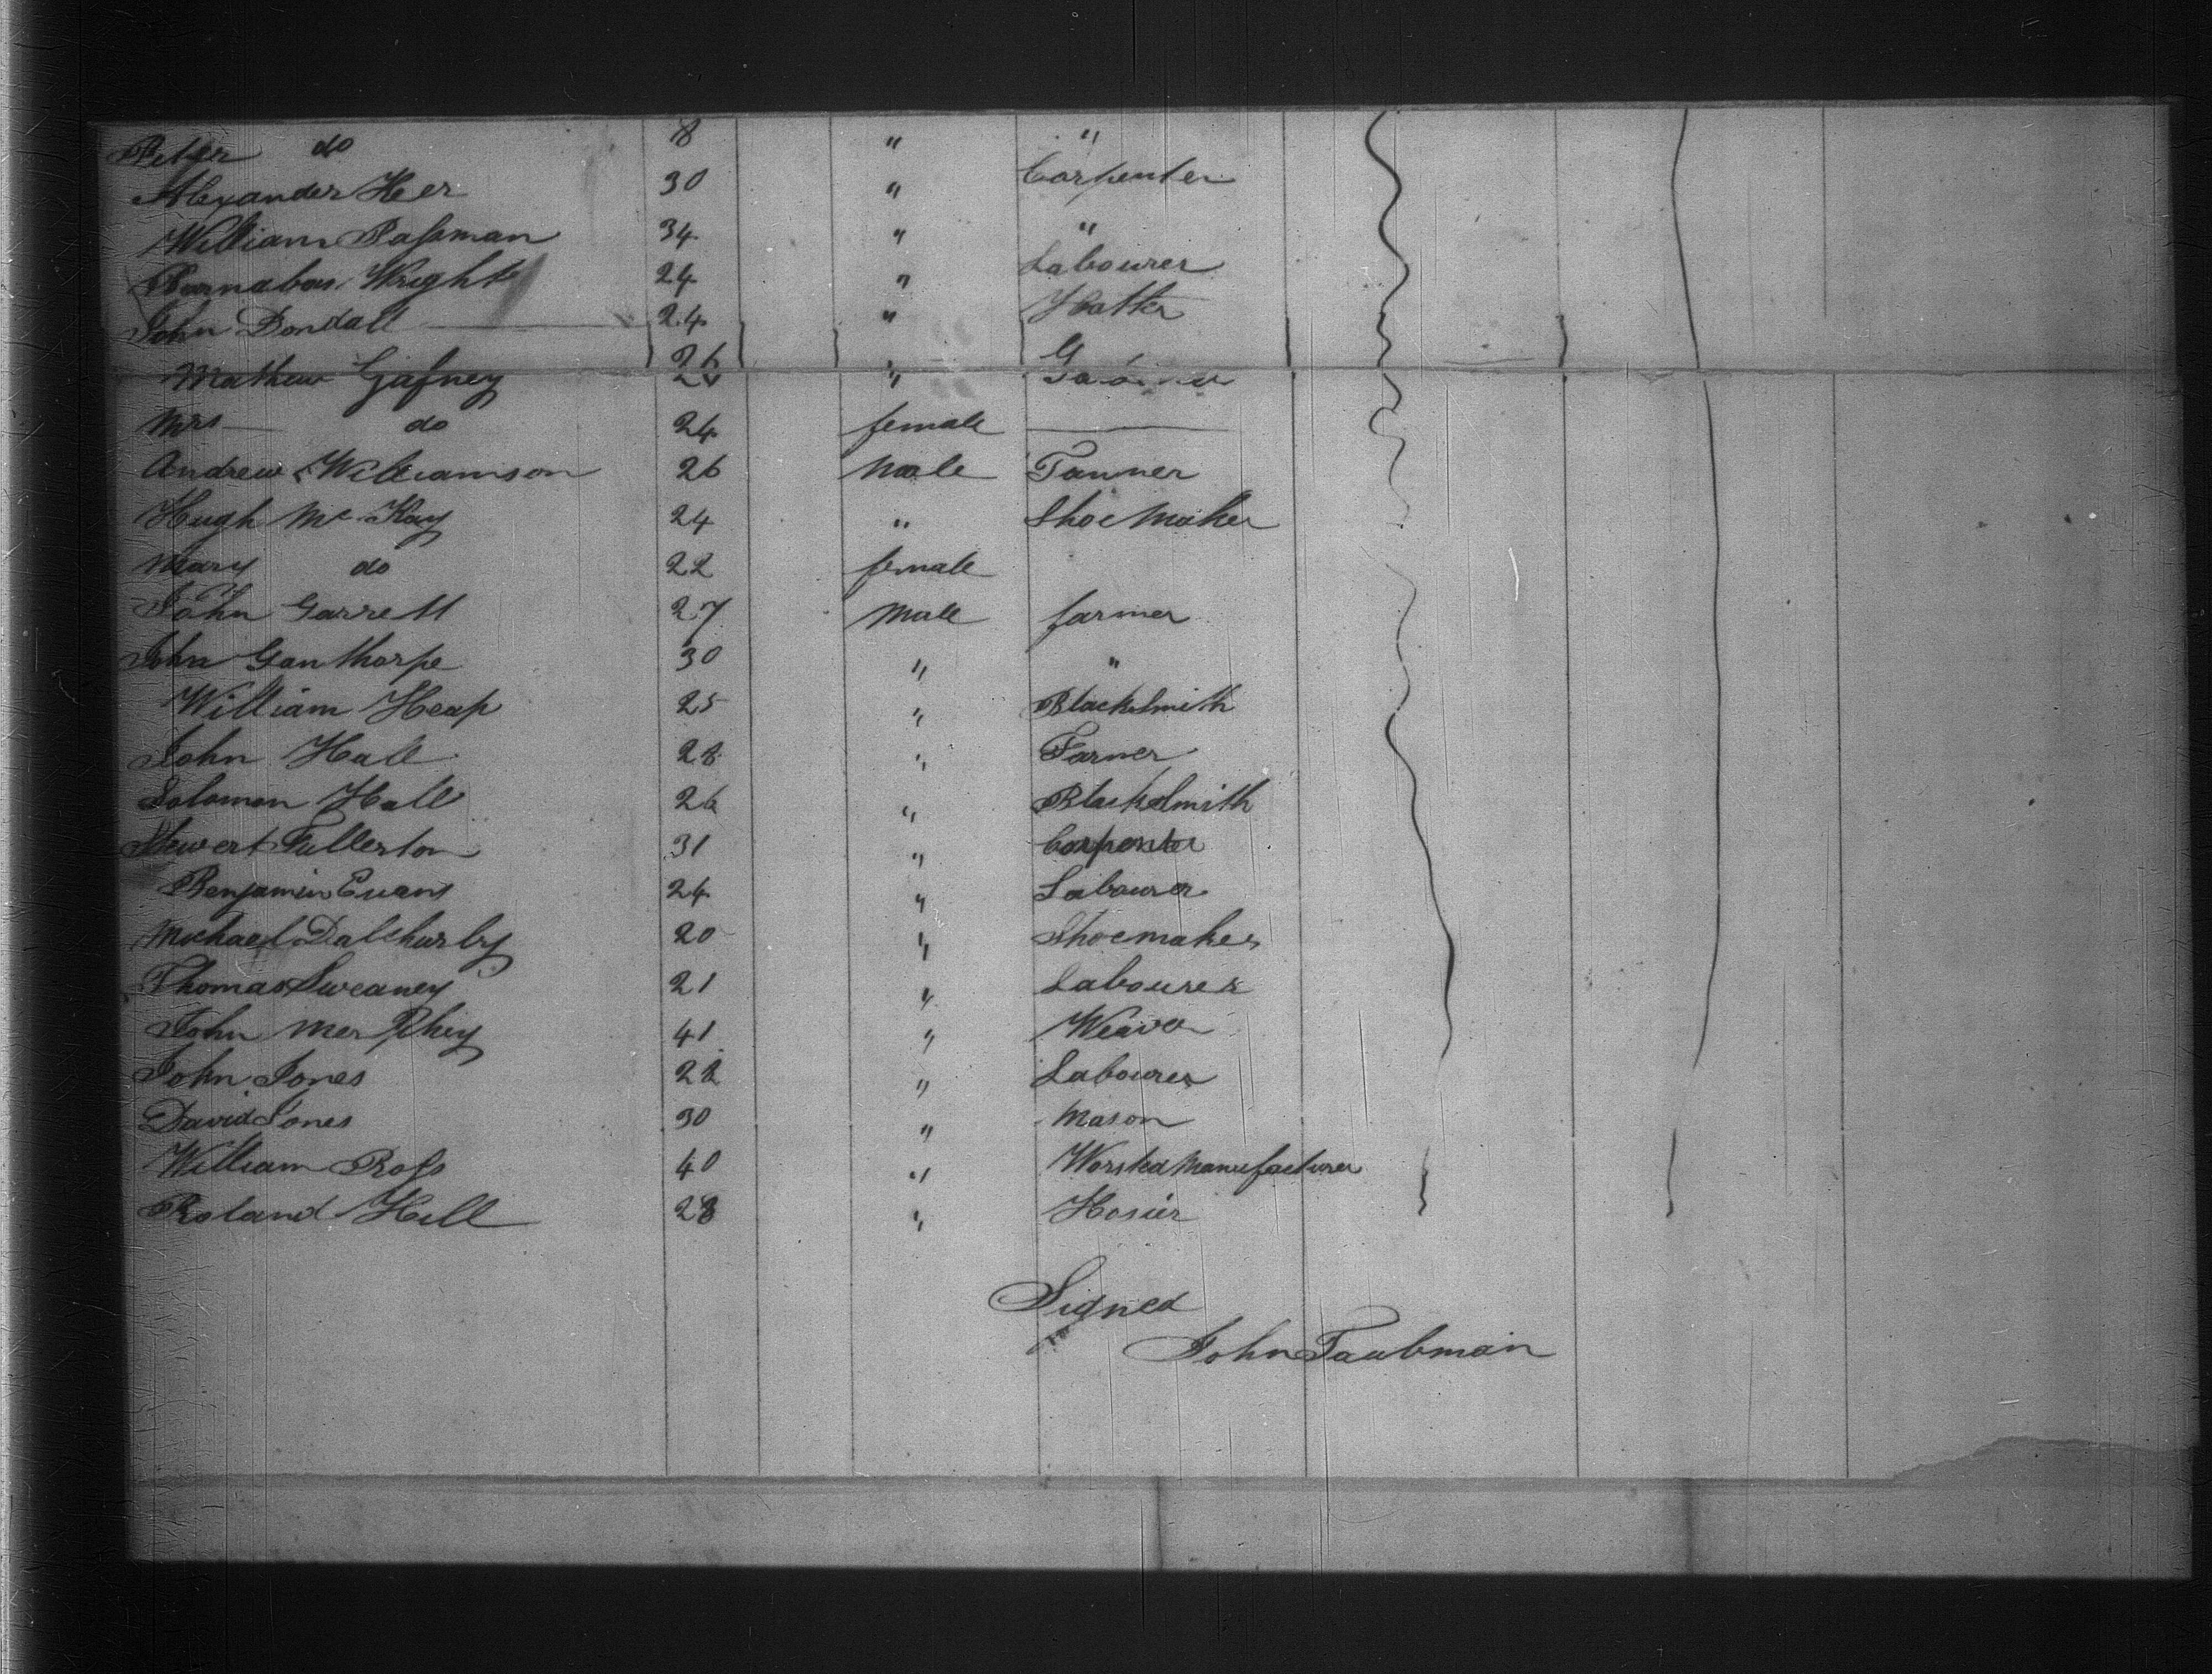 Peter do 8 " "
Alexander Heer 30 " Carpenter
William Passman 34 " "
Barnabas Wright 24 " Labourer
John Dondall 24 " Hatter
Mathew Gafney 26 "
Mrs do 24 female
Andrew Williamson 26 Male Tanner
Hugh Mc Kay 24 " Shoe Maker
Mary do 22 female
John Garrett 27 Male farmer
John Ganthorpe 30 " "
William Heap 25 " BlackSmith
John Hall 28 " Farmer
Solomon Hall 26 " BlackSmith
Stewert Fullerton 31 " Carpenter
Benjamin Evans 24 " Labourer
Michael 20 " Shoemaker
Thomas Sweaney 21 " Labourer
John Mer Phey 41 " Weaver
John Jones 22 " Labourer
David Jones 30 " Mason
William Ross 40 " Worsted Manufacturer
Roland Hill 28 " Hosier
Signed
John Taubman